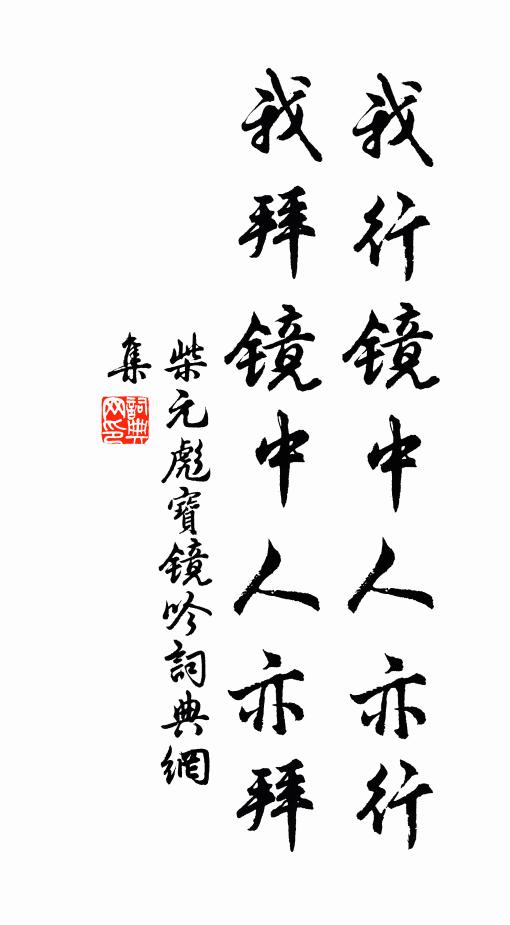 我行镜中人亦行
我拜镜中人亦拜
柴元彪寶镜吟詞典網
集
詞典
网印